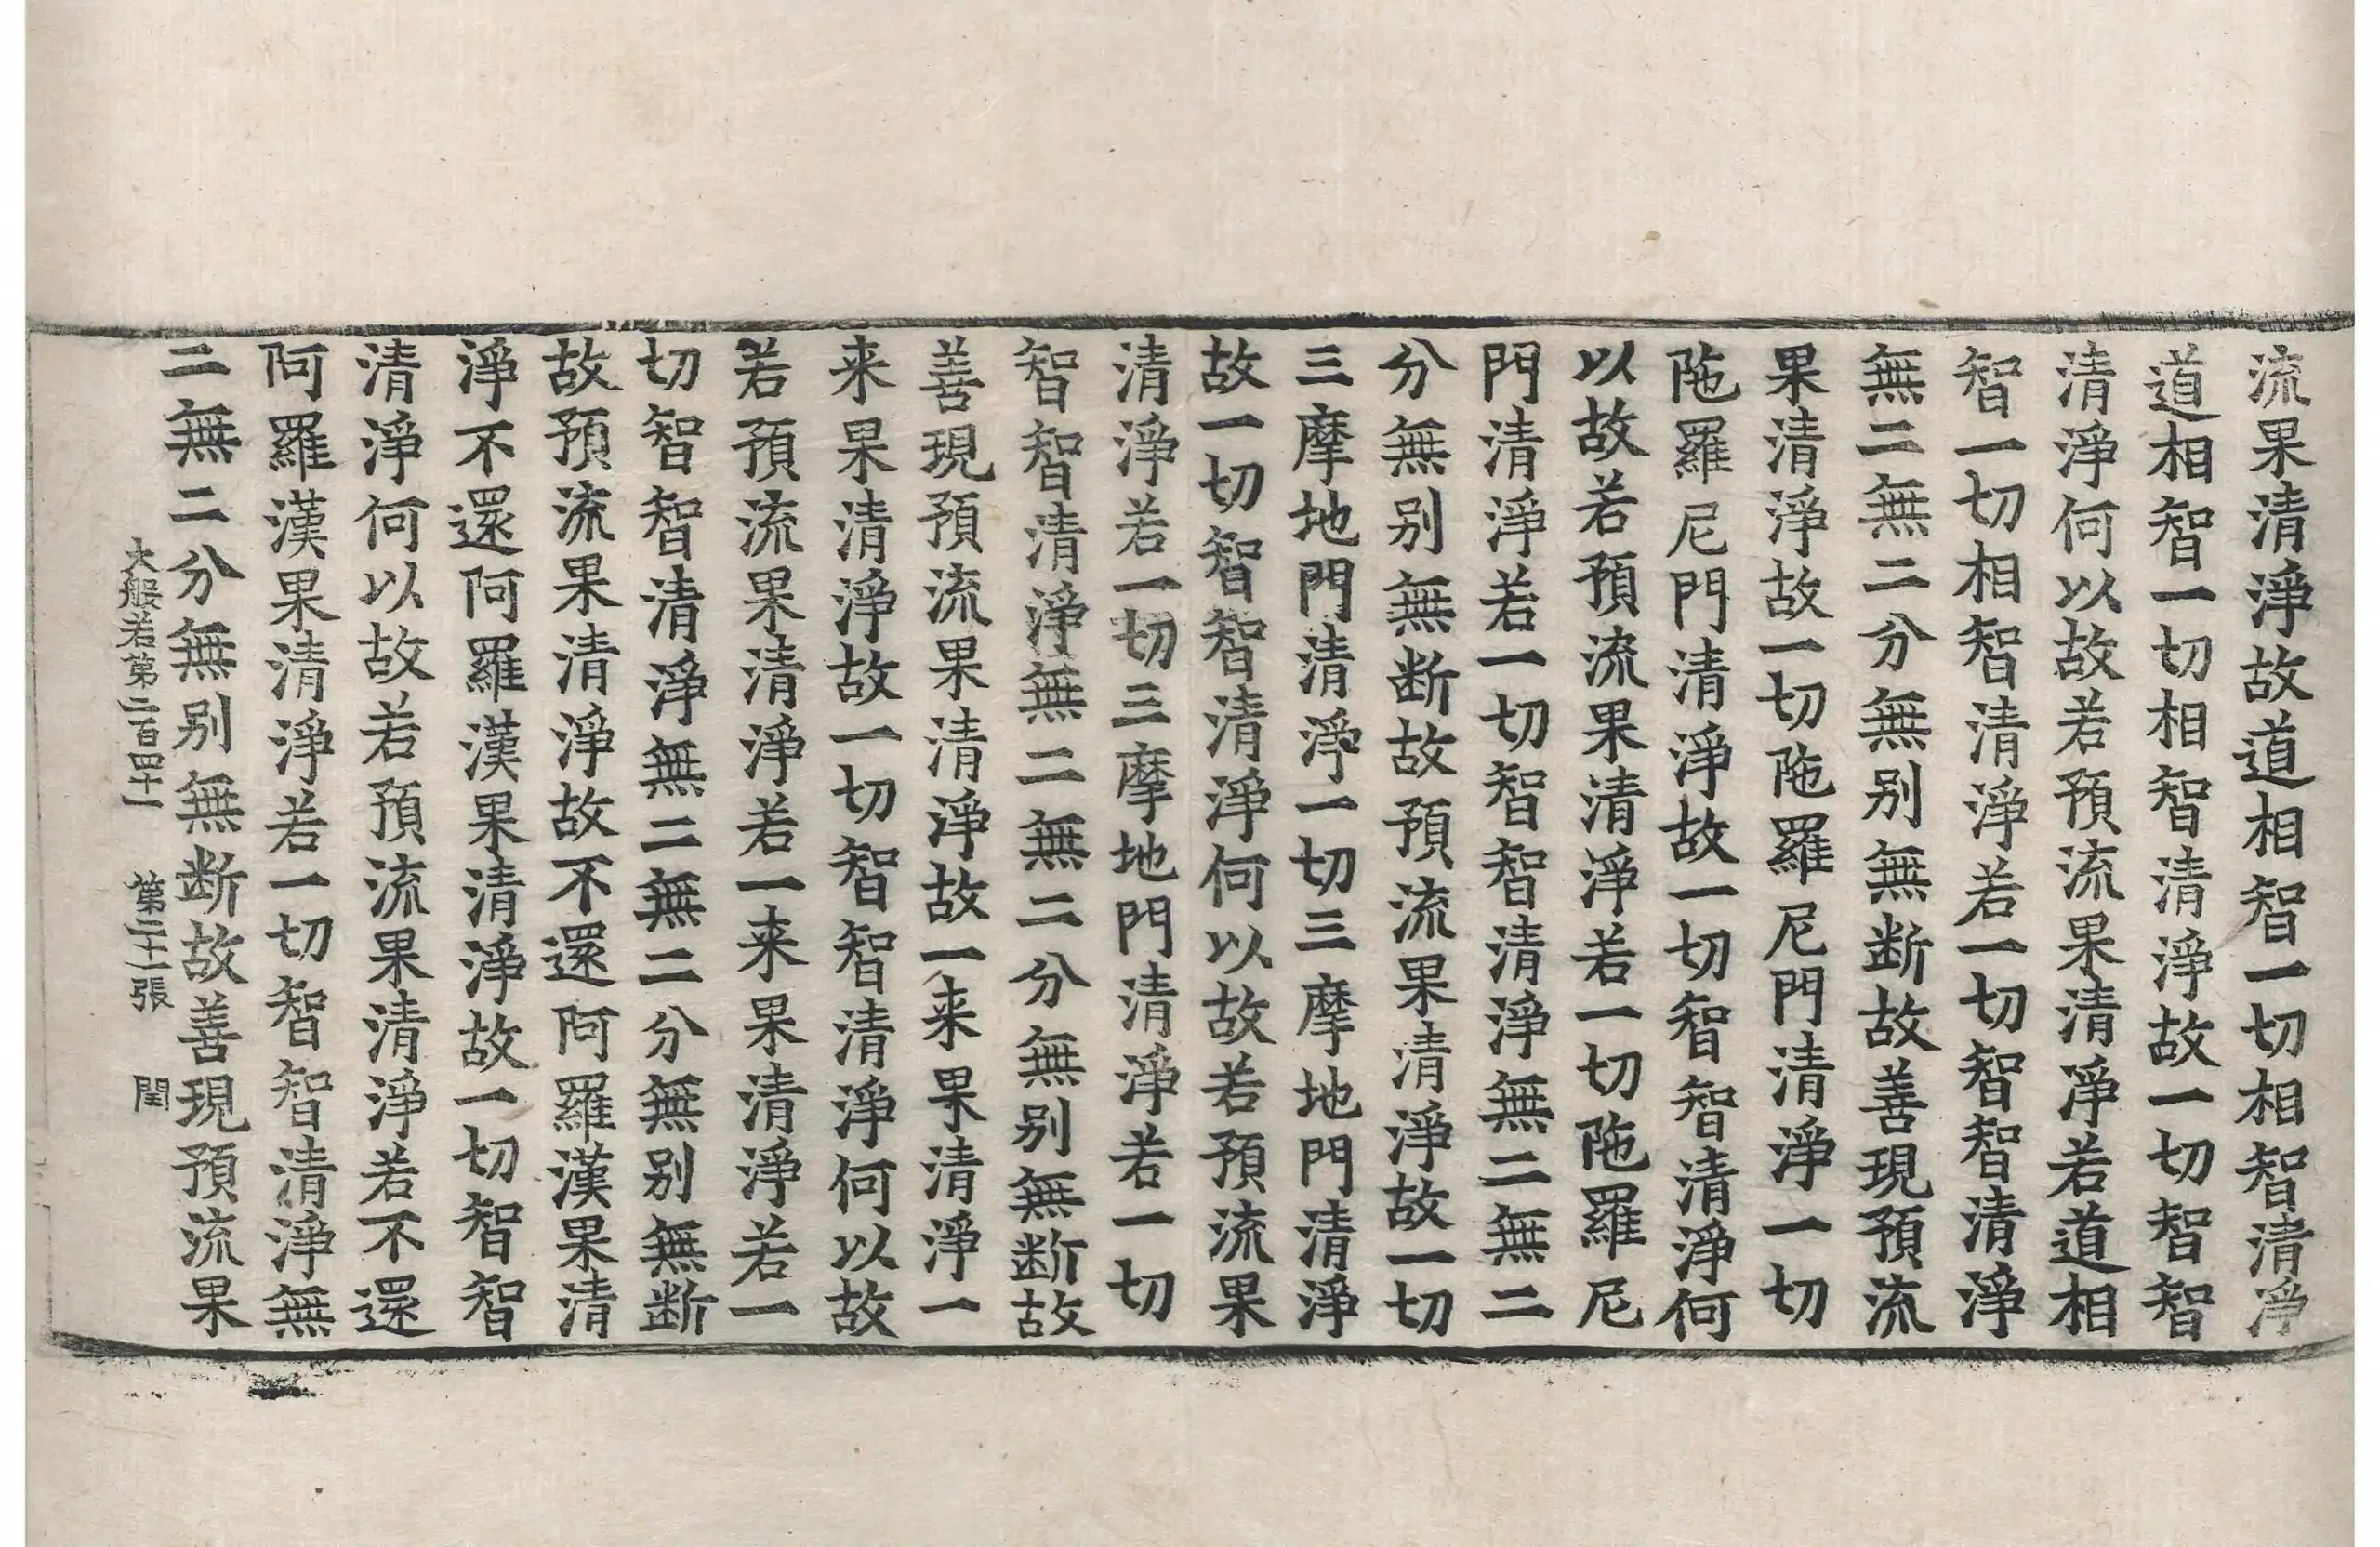 流果清淨故道相智一切相智清淨
道相智一切相智清淨故一切智智
清淨何以故若預流果清淨若道相
智一切相智清淨若一切智智清淨
無二無二分無别無断故善現預流
果清淨故一切陁羅尼門清淨一切
陁羅尼門清淨故一切智智清淨何
以故若預流果清淨若一切陁羅尼
門清淨若一切智智清淨無二無二
分無别無断故預流果清淨故一切
三摩地門清淨一切三摩地門清淨
故一切智智清淨何以故若預流果
清淨若一切三摩地門清淨若一切
智智清淨無二無二分無别無断故
善現預流果清淨故一来果清淨一
来果清淨故一切智智清淨何以故
若預流果清淨若一来果清淨若一
切智智清淨無二無二分無别無断
故預流果清淨故不還阿羅漢果清
淨不還阿羅漢果清淨故一切智智
清淨何以故若預流果清淨若不還
阿羅漢果清淨若一切智智清淨無
二無二分無别無断故善現預流果
大般若第二百四十一 第二十一張 閏